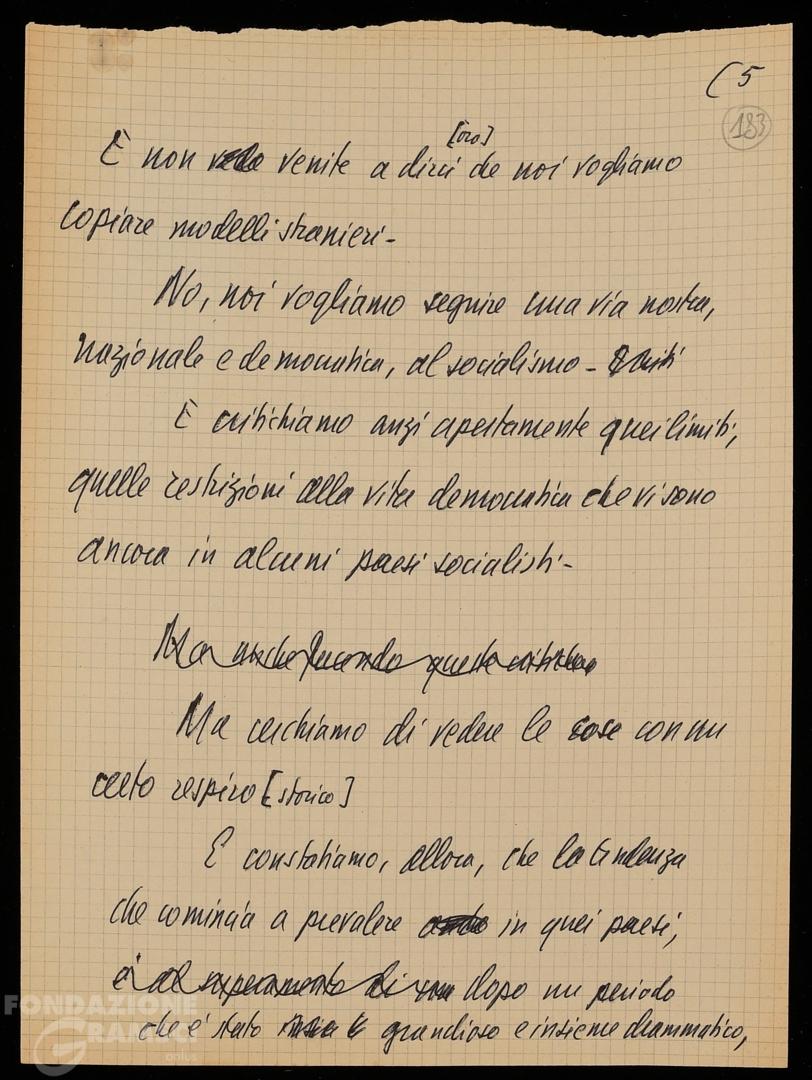 ( 5
183
[ora]
E non venite a dirci che noi vogliamo
copiare modelli stranieri -
No, noi vogliamo seguire una via nostra,
nazionale e democratica, al socialismo -
E critichiamo anzi apertamente quei limiti,
quelle restrizioni alla vita democratica che vi sono
ancora in alcuni paesi socialisti -
Ma anche facendo queste critiche
Ma cerchiamo di vedere le cose con un
certo respiro [storico]
E constatiamo, allora, che la tendenza
che comincia a prevalere anche in quei paesi,
è al superamento di dopo un periodo
che è stato grandioso e insieme drammatico,
FONDAZIONE
GRAMSCI
onlus